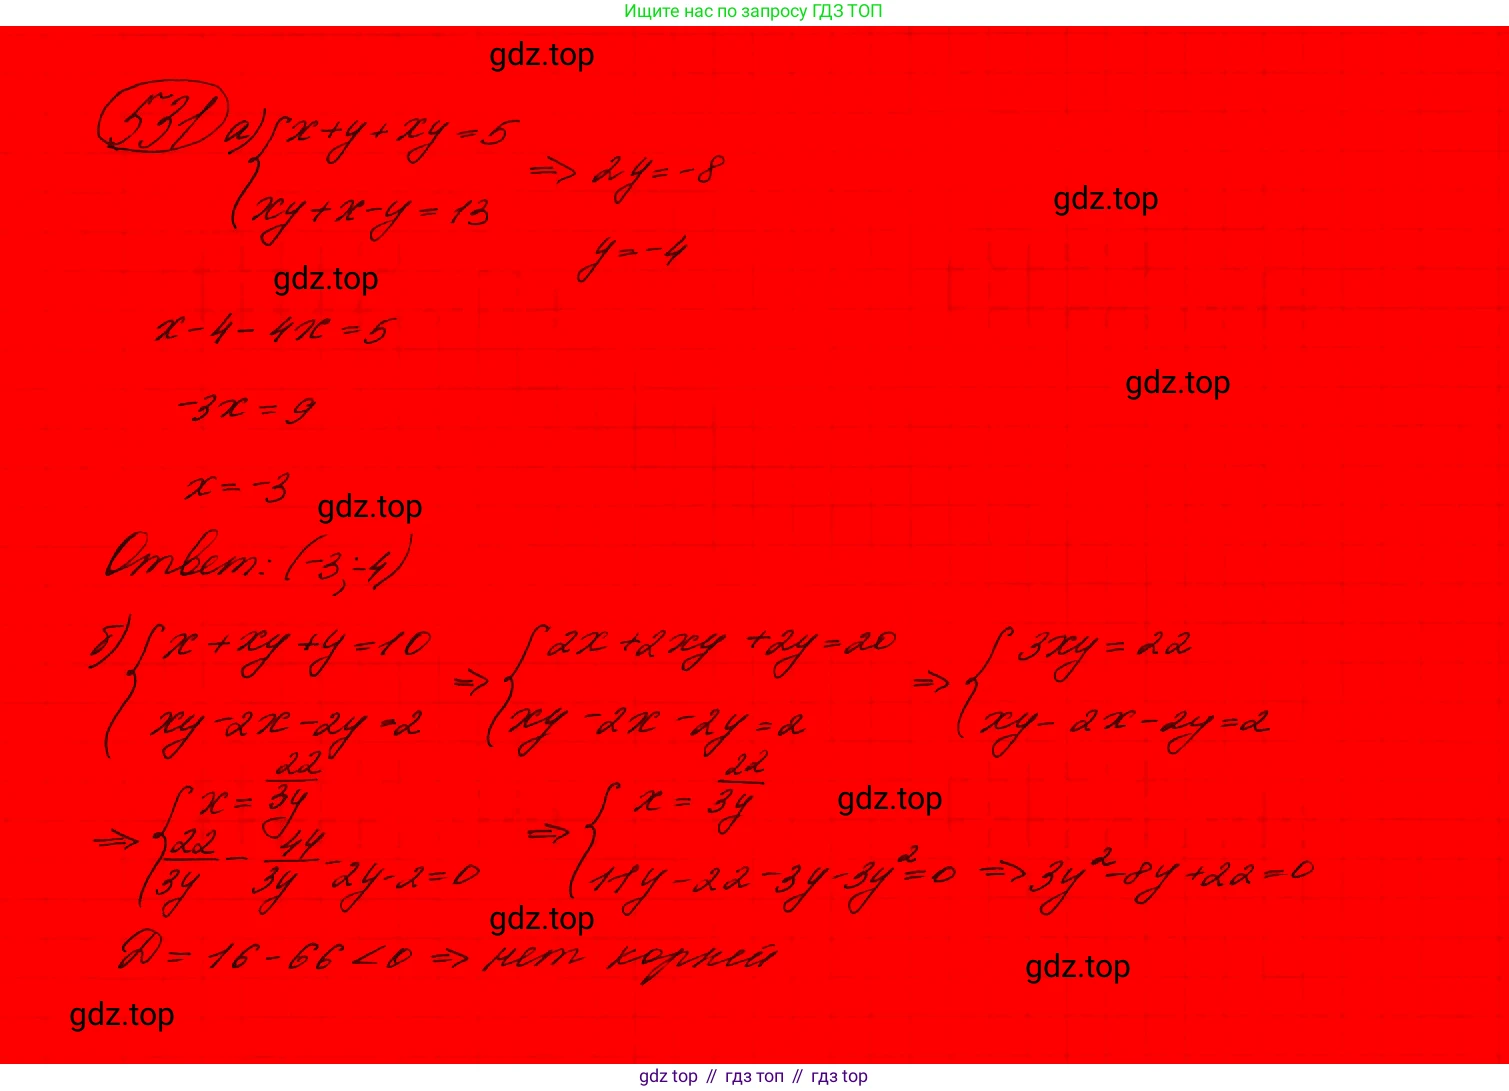 Ищите нас по запросу ГДЗ ТОП
gdz.top
531 а) { x + y + xy = 5
xy + x - y = 13
=> 2y = -8
y = -4
gdz.top
gdz.top
x - 4 - 4x = 5
gdz.top
-3x = 9
x = -3
gdz.top
Ответ: (-3; -4)
б) { x + xy + y = 10 => { 2x + 2xy + 2y = 20 => { 3xy = 22
xy - 2x - 2y = 2 xy - 2x - 2y = 2 xy - 2x - 2y = 2
=> { x = 22/3y => { x = 22/3y
gdz.top
22/3y - 44/3y - 2y - 2 = 0 11y - 22 - 3y - 3y² = 0 => 3y² - 8y + 22 = 0
gdz.top
D = 16 - 66 < 0 => нет корней
gdz.top
gdz.top
gdz top // гдз топ // гдз top